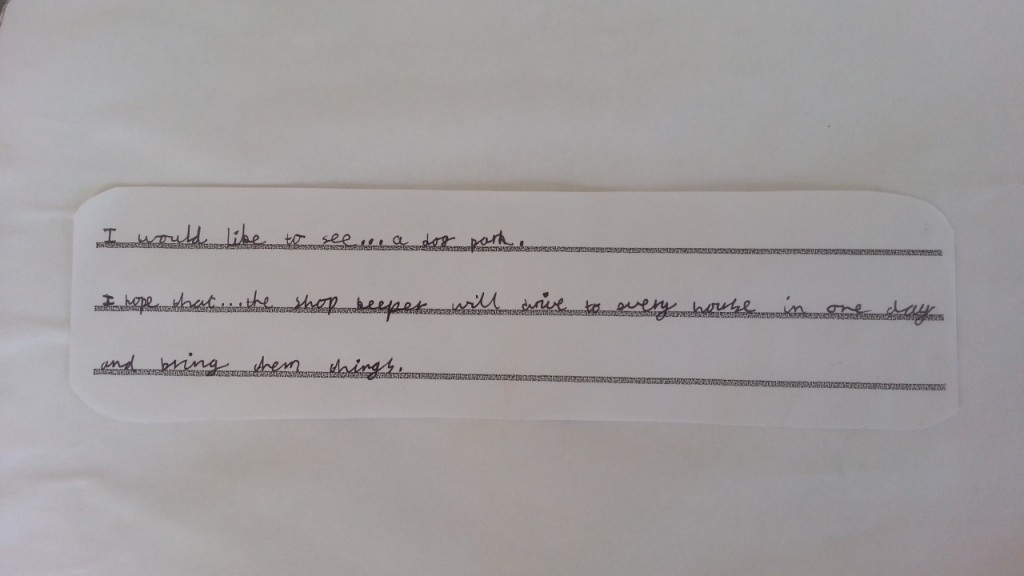 I would like to see... a dog park.
I hope that... the shop keeper will drive to every house in one day
and bring them things.